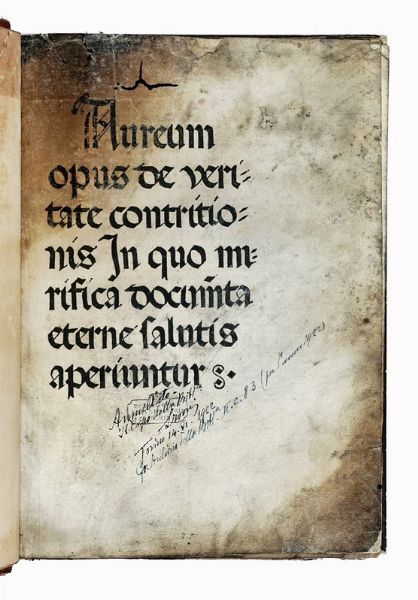 Aureum
opus de veri-
tate contritio-
nis In quo mi-
rifica docum̄ta
eterne salutis
aperiuntur
Torino 14.XI.1922